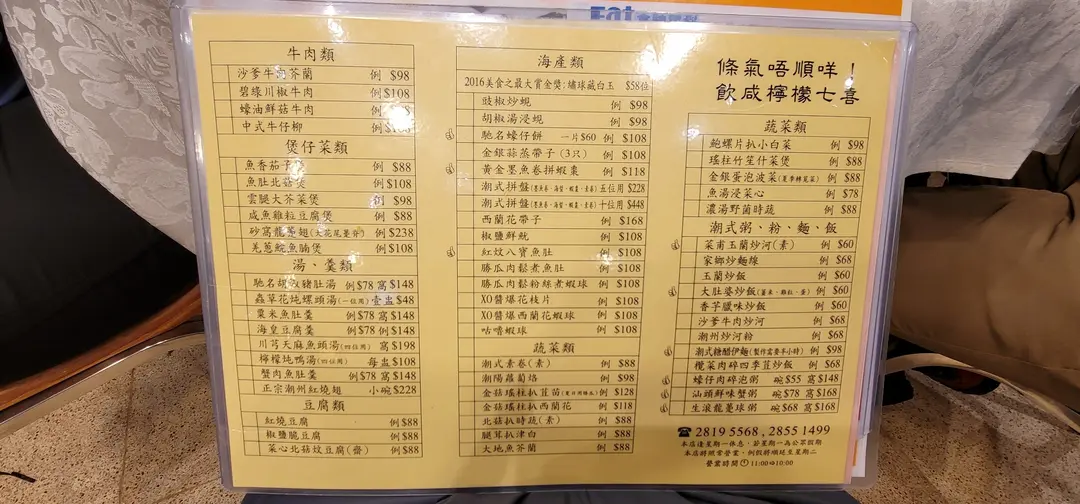 牛肉類
沙爹牛肉芥蘭 例 $98
碧綠川椒牛肉 例 $108
蠔油鮮菇牛肉 例
中式牛仔柳 例
煲仔菜類
魚香茄子 例 $88
魚肚北菇煲 例 $108
雲腿大芥菜煲 例 $98
咸魚雞粒豆腐煲 例 $88
砂窩龍躉翅(大花尾躉骨) 例 $238
羌蔥焗魚腩煲 例 $108
湯、羹類
馳名胡椒豬肚湯 例$78 窩$148
蟲草花炖螺頭湯(一位用) 壹盅 $48
粟米魚肚羹 例$78 窩$148
海皇豆腐羹 例$78 例$148
川芎天麻魚頭湯(四位用) 窩 $198
檸檬炖鴨湯(四位用) 每盅 $108
蟹肉魚肚羹 例$78 窩$148
正宗潮州紅燒翅 小碗$228
豆腐類
紅燒豆腐 例 $88
椒鹽脆豆腐 例 $88
菜心北菇炆豆腐(齋) 例 $88
海產類
2016美食之最大賞金獎:繡球藏白玉 $58位
豉椒炒蜆 例 $98
胡椒湯浸蜆 例 $98
馳名蠔仔餅 一片$60 例 $108
金銀蒜蒸帶子(3只) 例 $108
黃金墨魚卷拼蝦棗 例 $118
潮式拼盤(墨魚卷、海蜇、蝦棗、素卷)五位用 $228
潮式拼盤(墨魚卷、海蜇、蝦棗、素卷)十位用 $448
西蘭花帶子 例 $168
椒鹽鮮魷 例 $108
紅炆八寶魚肚 例 $108
勝瓜肉鬆煮魚肚 例 $108
勝瓜肉鬆粉絲煮蝦球 例 $108
XO醬爆花枝片 例 $108
XO醬爆西蘭花蝦球 例 $108
咕嚕蝦球 例 $108
蔬菜類
潮式素卷(素) 例 $88
潮陽蘿蔔烙 例 $98
金菇瑤柱扒荳苗 例 $128
金菇瑤柱扒西蘭花 例 $118
北菇扒時蔬(素) 例 $88
腿茸扒津白 例 $88
大地魚芥蘭 例 $88
條氣唔順咩!
飲咸檸檬七喜
蔬菜類
鮑螺片扒小白菜 例 $98
瑤柱竹笙什菜煲 例 $88
金銀蛋泡波菜(夏季轉莧菜) 例 $88
魚湯浸菜心 例 $78
濃湯野菌時蔬 例 $88
潮式粥、粉、麵、飯
菜甫玉蘭炒河(素) 例 $60
家鄉炒麵線 例 $68
玉蘭炒飯 例 $60
大肚婆炒飯(薑米、雞粒、蛋) 例 $60
香芋臘味炒飯 例 $60
沙爹牛肉炒河 例 $68
潮州炒河粉 例 $68
潮式糖醋伊麵(製作需要半小時) 例 $98
欖菜肉碎四季荳炒飯 例 $68
蠔仔肉碎泡粥 碗$55 窩$148
汕頭鮮味蟹粥 碗$78 窩$168
生滾龍躉球粥 碗$68 窩$168
☎ 2819 5568 , 2855 1499
本店逢星期一休息,若星期一為公眾假期
本店將照常營業,例假將順延至星期二
營業時間 11:00⇨10:00